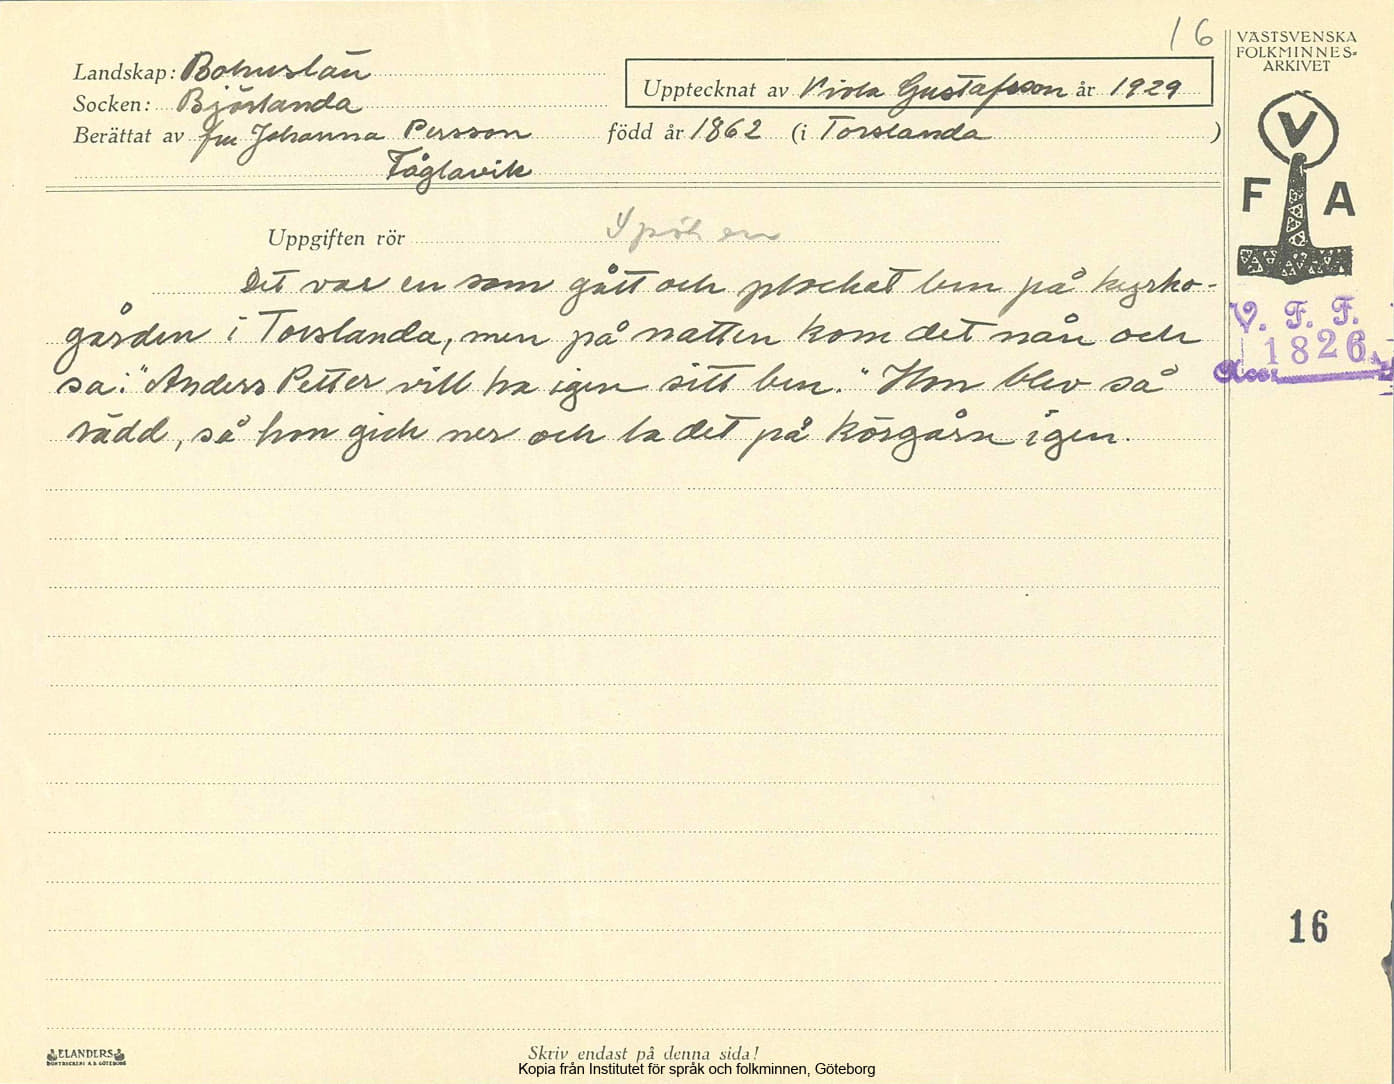 16
VÄSTSVENSKA
FOLKMINNES-
ARKIVET
Landskap: Bohuslän
Socken: Björlanda
Upptecknat av Viola Gustafsson år 1929
Berättat av fru Johanna Persson född år 1862 (i Torslanda )
Fåglavik
V
F A
Uppgiften rör
Det var en som gått och plockat ben på kyrko-
gården i Torslanda, men på natten kom det nån och
sa: "Anders Petter vill ha igen sitt ben." Hon blev så
rädd, så hon gick ner och la det på körgårn igen.
V. F. F.
Acc. 1826
16
ELANDERS
BOKTRYCKERI A.B. GÖTEBORG
Skriv endast på denna sida!
Kopia från Institutet för språk och folkminnen, Göteborg